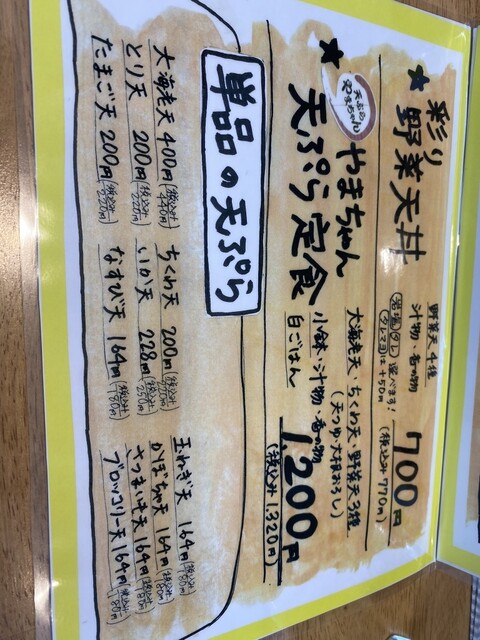 ★彩り野菜天丼
野菜天4種
汁物・香の物
岩塩 タレ 選べます！
(タレマヨ)は+50円
700円
(税込み770円)
天ぷら
やまちゃん
★やまちゃん
天ぷら定食
大海老天・ちくわ天・野菜天3種
(天つゆ・大根おろし)
小鉢・汁物・香の物
白ごはん
1,200円
(税込み1,320円)
単品の天ぷら
大海老天 400円(税込み440円)
とり天 200円(税込み220円)
たまご天 200円(税込み220円)
ちくわ天 200円(税込み220円)
いか天 228円(税込み250円)
なすび天 164円(税込み180円)
玉ねぎ天 164円(税込み180円)
かぼちゃ天 164円(税込み180円)
さつまいも天 164円(税込み180円)
ブロッコリー天 164円(税込み180円)